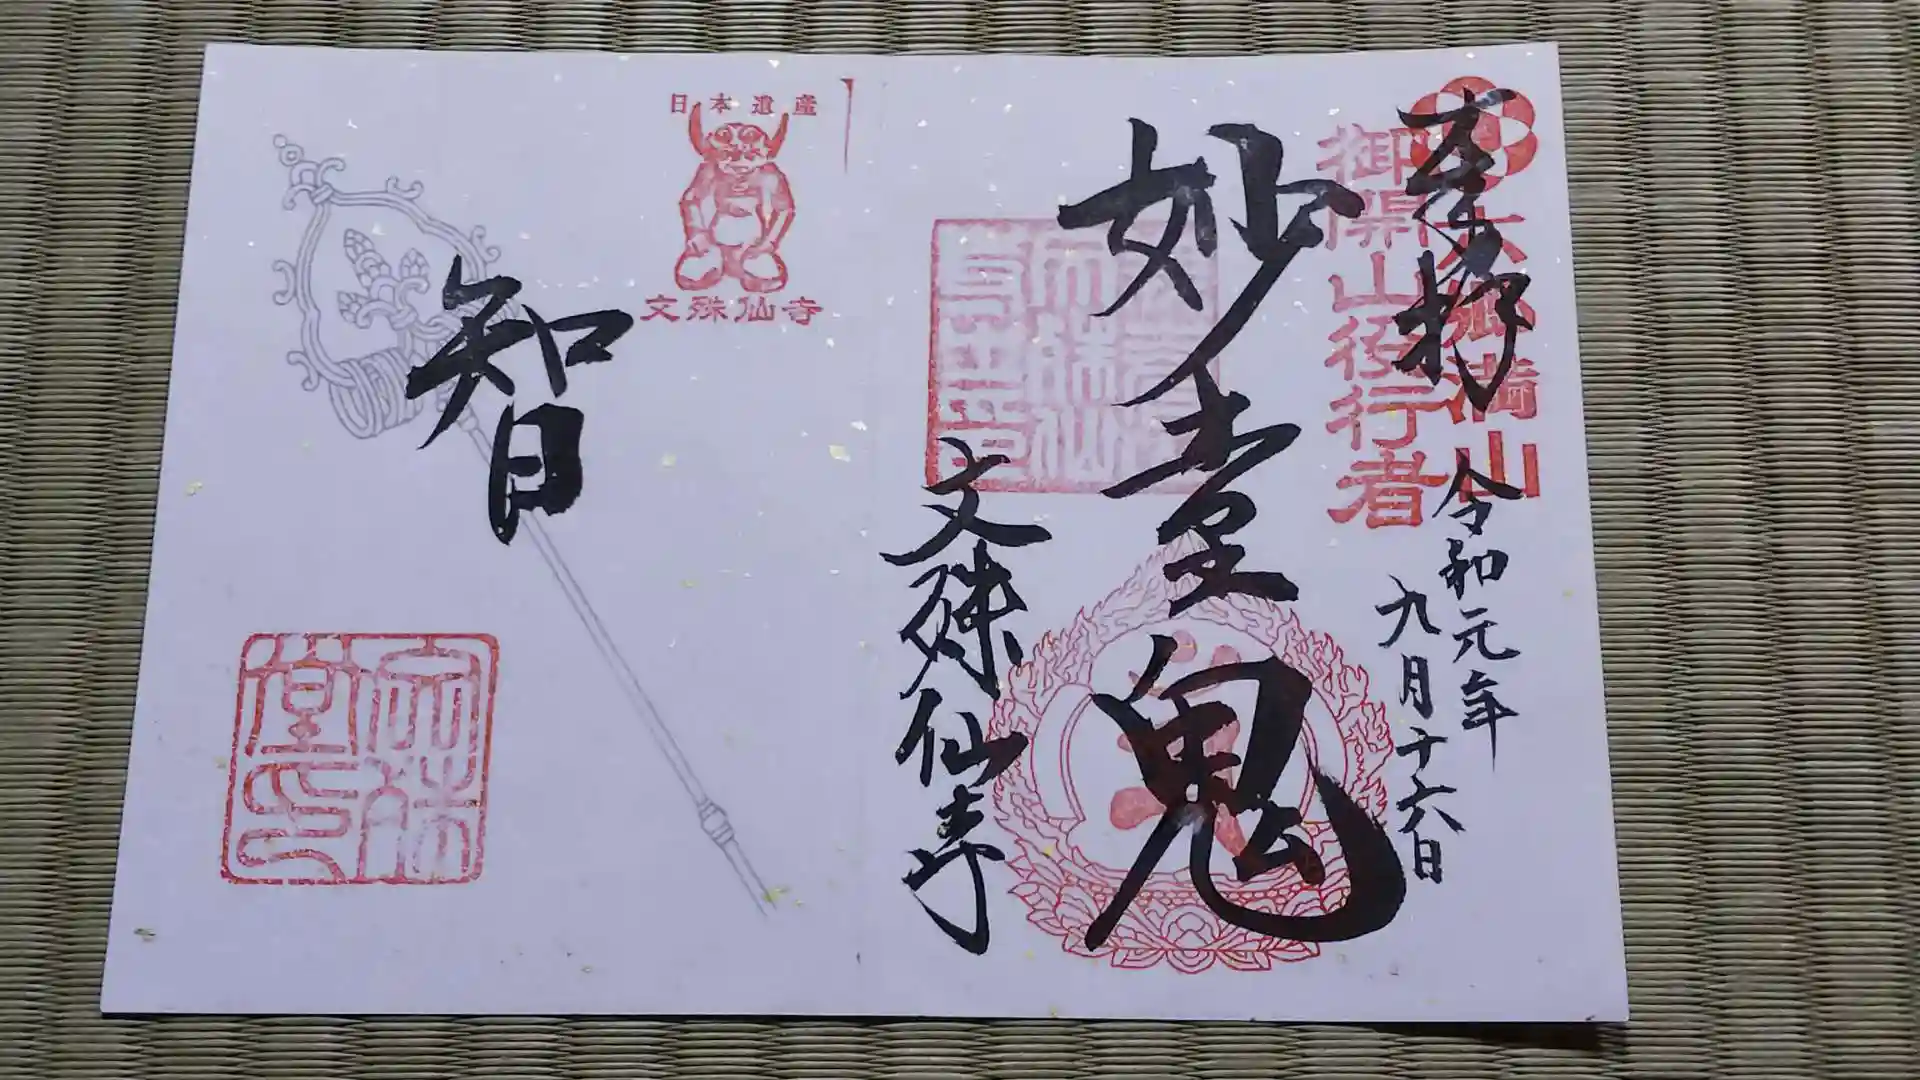 奉拝
六郷満山
御開山役行者
令和元年
九月十六日
妙童鬼
文殊仙寺
日本遺産
文殊仙寺
智